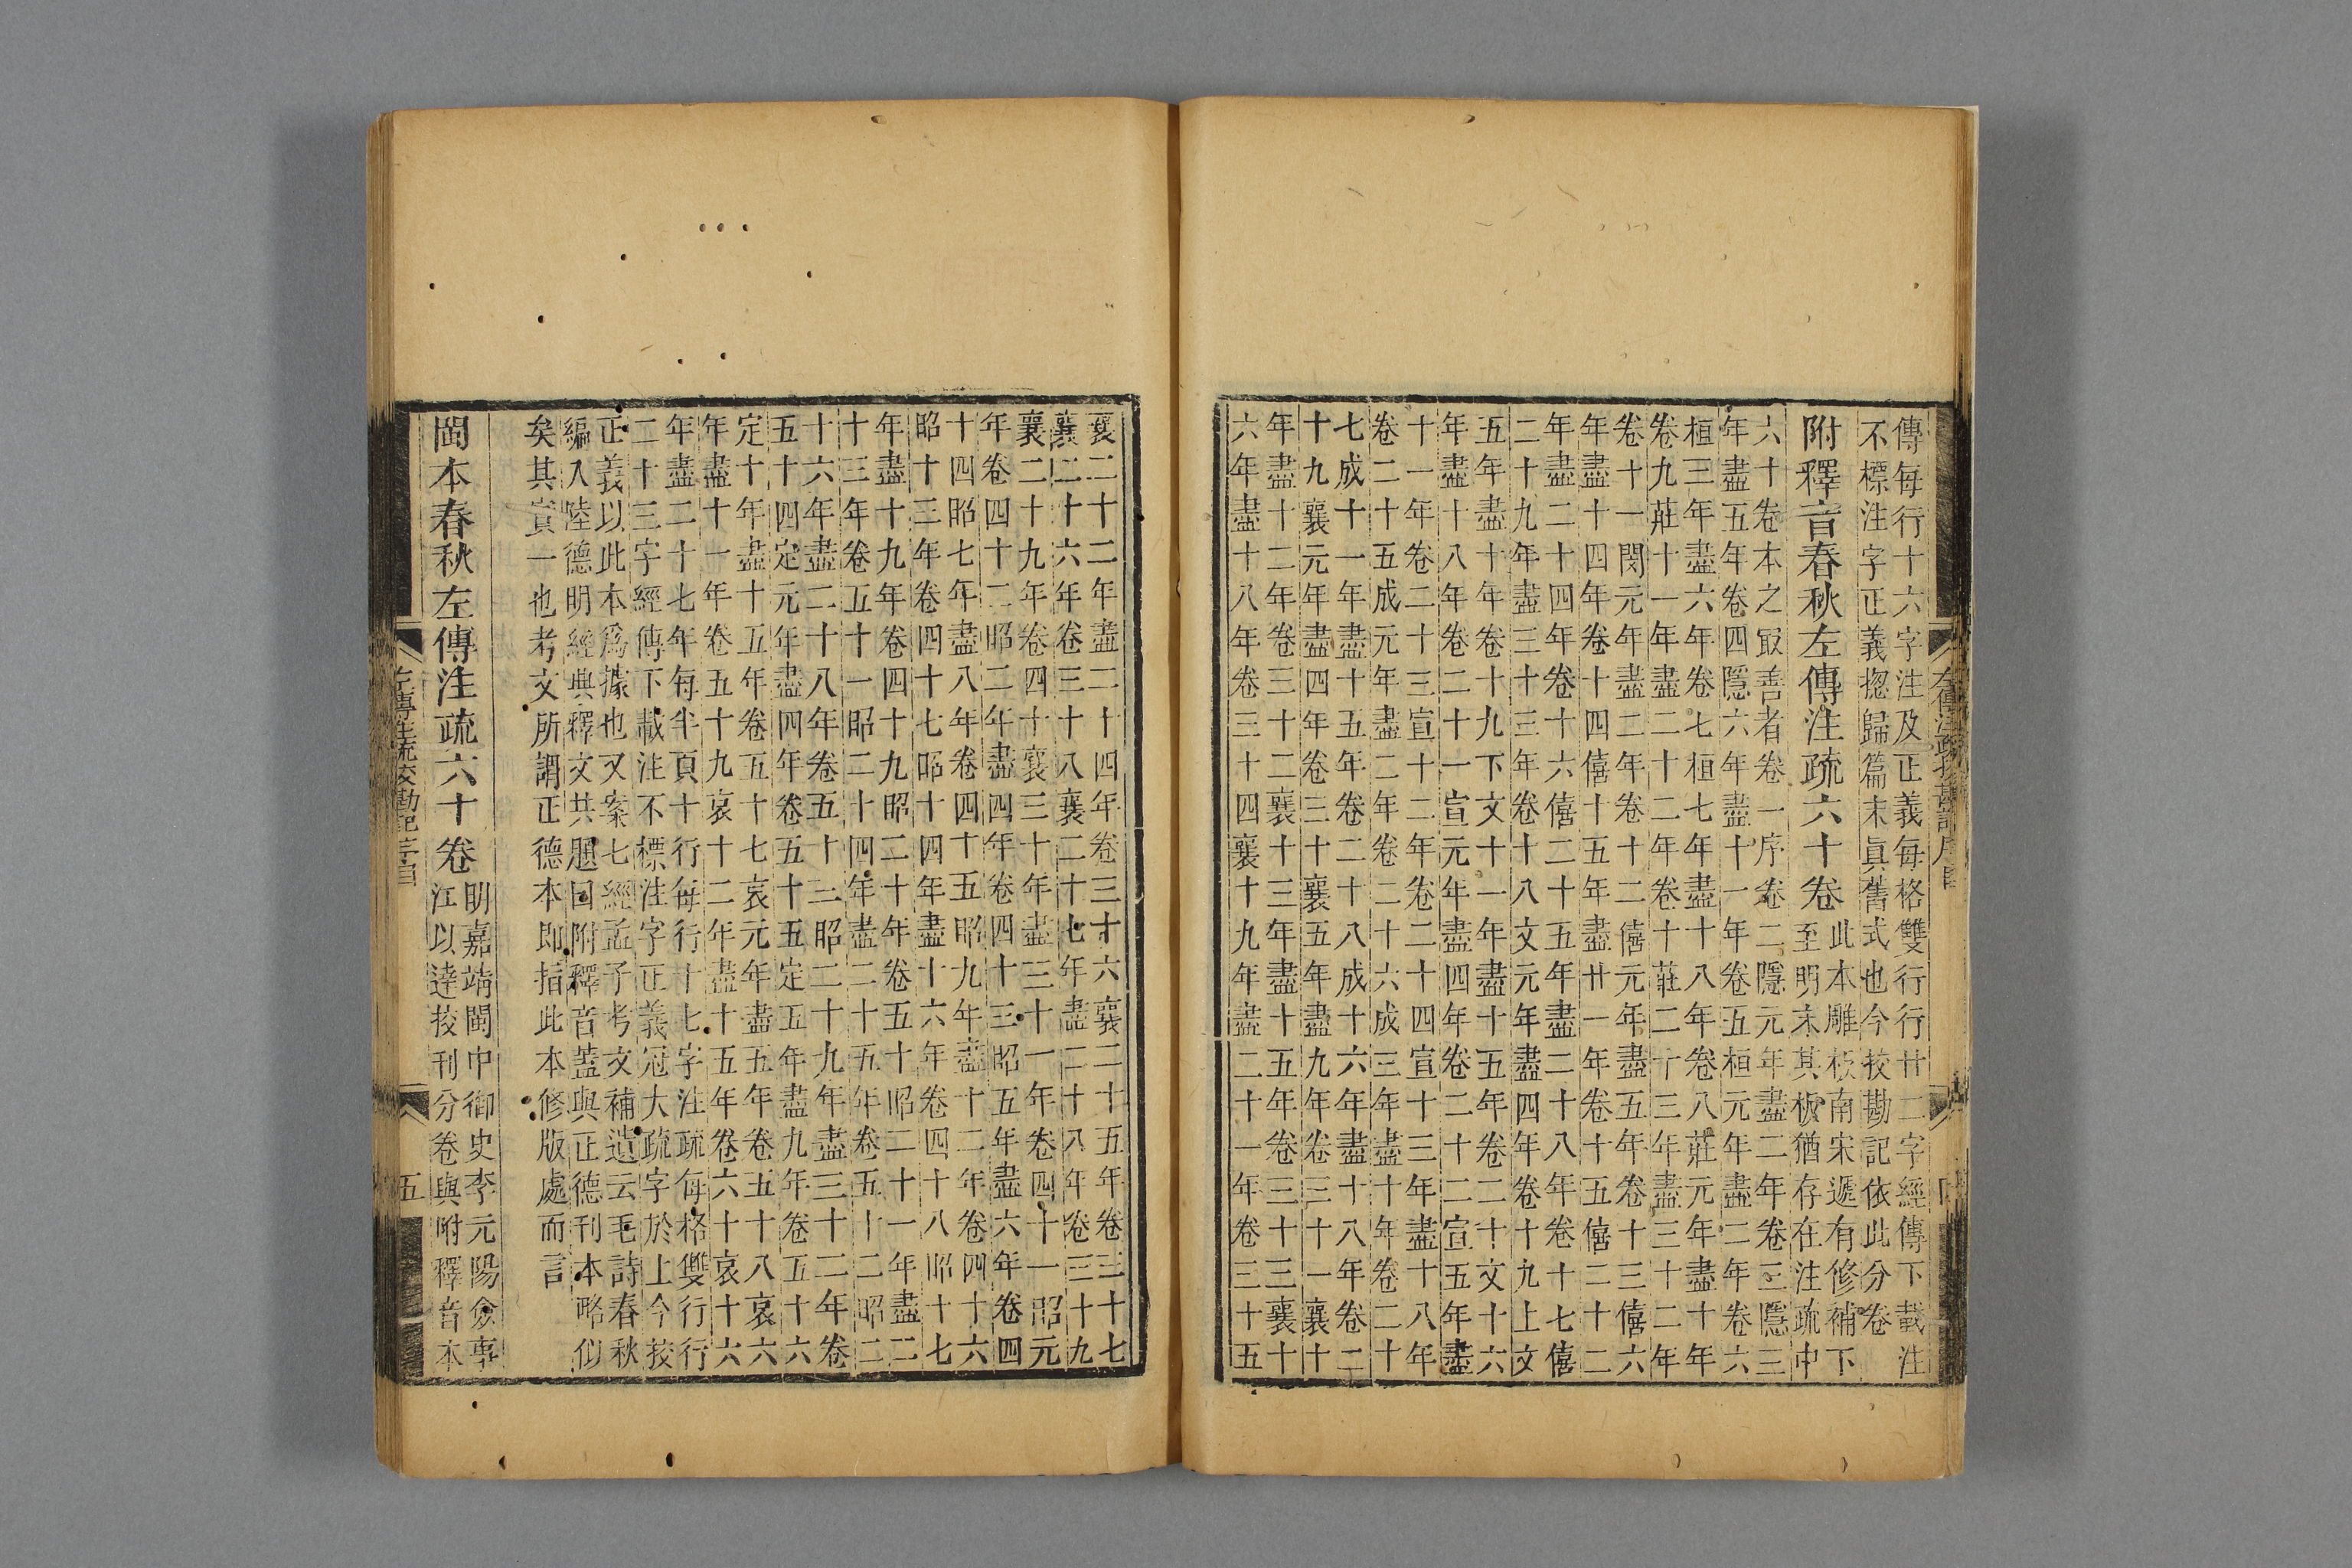 左傳注疏挍勘記序目
傳每行十六字注及正義每格雙行行廿二字經傳下載注
不標注字正義揔歸篇末眞舊式也今挍勘記依此分卷
附釋音春秋左傳注疏六十卷
此本雕板南宋遞有修補下
至明末其板猶存在注疏中
六十卷本之㝡善者卷一序卷二隱元年盡二年卷三隱三
年盡五年卷四隱六年盡十一年卷五桓元年盡二年卷六
桓三年盡六年卷七桓七年盡十八年卷八莊元年盡十年
卷九莊十一年盡二十二年卷十莊二十三年盡三十二年
卷十一閔元年盡二年卷十二僖元年盡五年卷十三僖六
年盡十四年卷十四僖十五年盡廿一年卷十五僖二十二
年盡二十四年卷十六僖二十五年盡二十八年卷十七僖
二十九年盡三十三年卷十八文元年盡四年卷十九上文
五年盡十年卷十九下文十一年盡十五年卷二十文十六
年盡十八年卷二十一宣元年盡四年卷二十二宣五年盡
十一年卷二十三宣十二年卷二十四宣十三年盡十八年
卷二十五成元年盡二年卷二十六成三年盡十年卷二十
七成十一年盡十五年卷二十八成十六年盡十八年卷二
十九襄元年盡四年卷三十襄五年盡九年卷三十一襄十
年盡十二年卷三十二襄十三年盡十五年卷三十三襄十
六年盡十八年卷三十四襄十九年盡二十一年卷三十五
襄二十二年盡二十四年卷三十六襄二十五年卷三十七
襄二十六年卷三十八襄二十七年盡二十八年卷三十九
襄二十九年卷四十襄三十年盡三十一年卷四十一昭元
年卷四十二昭二年盡四年卷四十三昭五年盡六年卷四
十四昭七年盡八年卷四十五昭九年盡十二年卷四十六
昭十三年卷四十七昭十四年盡十六年卷四十八昭十七
年盡十九年卷四十九昭二十年卷五十昭二十一年盡二
十三年卷五十一昭二十四年盡二十五年卷五十二昭二
十六年盡二十八年卷五十三昭二十九年盡三十二年卷
五十四定元年盡四年卷五十五定五年盡九年卷五十六
定十年盡十五年卷五十七哀元年盡五年卷五十八哀六
年盡十一年卷五十九哀十二年盡十五年卷六十哀十六
年盡二十七年每半頁十行每行十七字注疏每格雙行行
二十三字經傳下載注不標注字正義冠大疏字於上今挍
正義以此本爲據也又案七經孟子考文補遺云毛詩春秋
編入陸德明經典釋文共題曰附釋音蓋與正德刊本略似
矣其實一也考文所謂正德本即指此本修版處而言
閩本春秋左傳注疏六十卷
明嘉靖閩中御史李元陽僉事
江以達挍刊分卷與附釋音本
左傳注疏校勘記序目
五